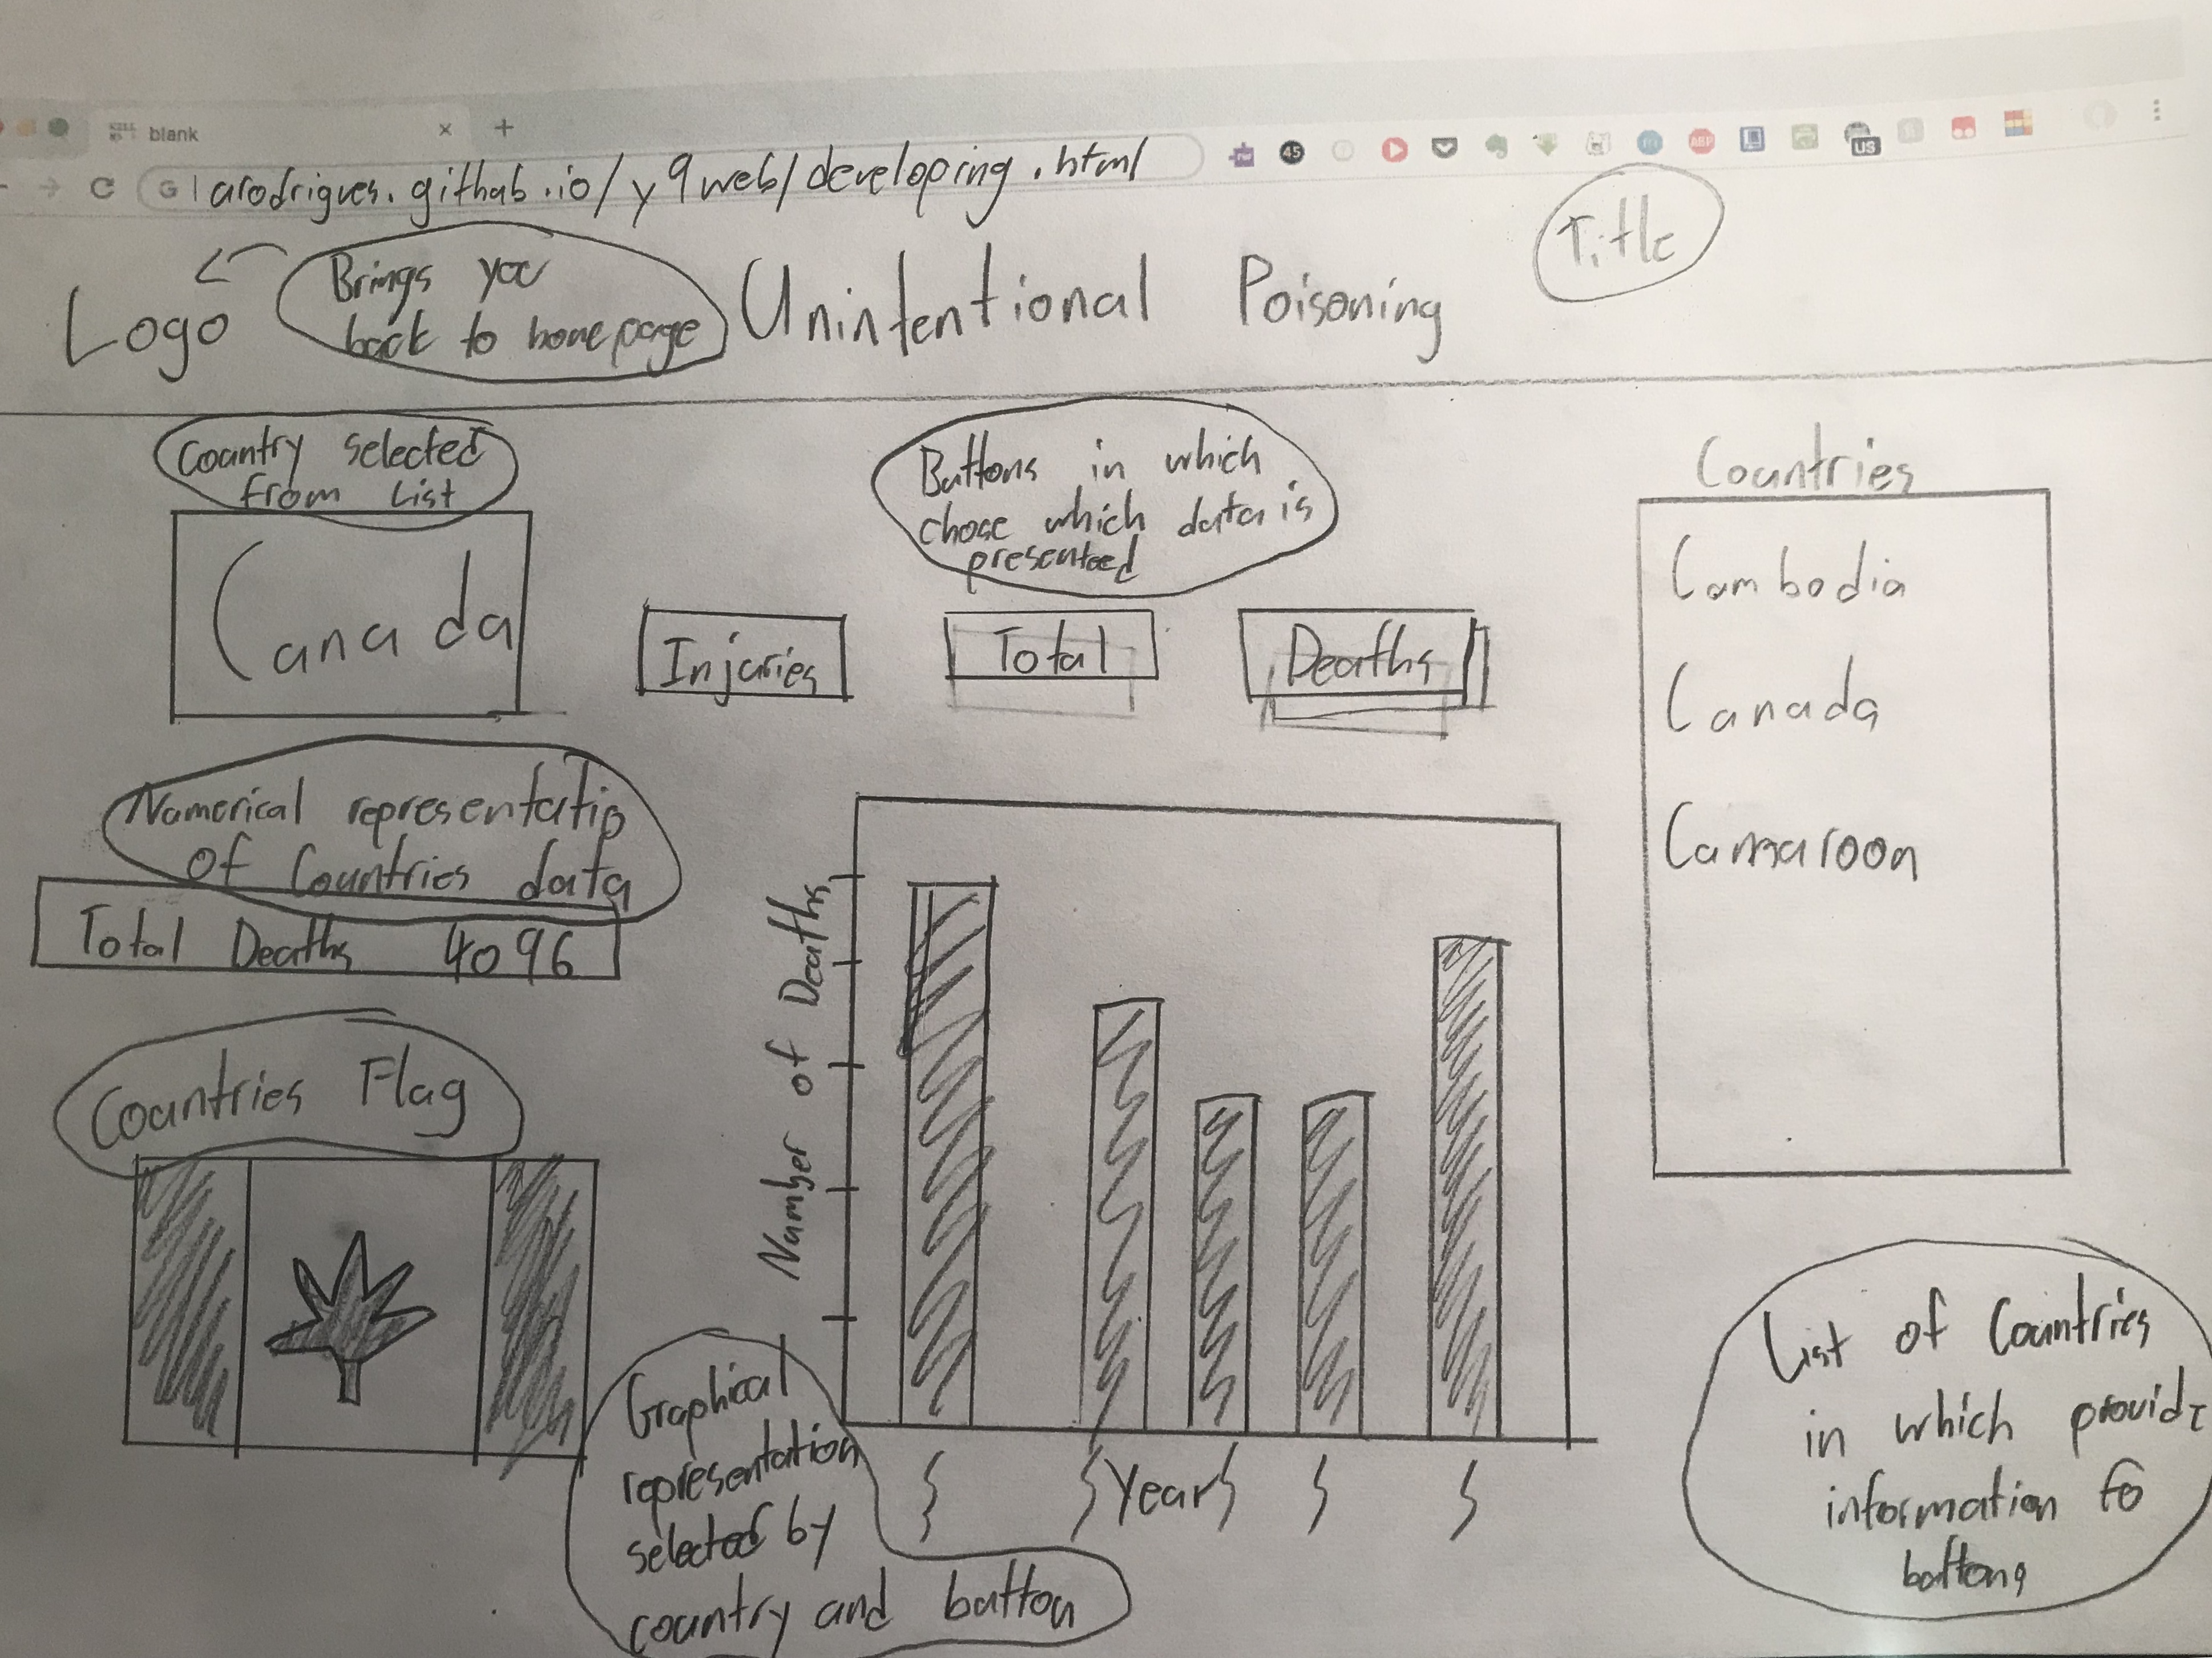 blank
arodrigues.github.io/y9web/developing.html
45
ABP
US
Title
Brings you
back to homepage
Logo
Unintentional Poisoning
Country selected
from list
Canada
Buttons in which
chose which data is
presented
Injuries
Total
Deaths
Countries
Cambodia
Canada
Camaroon
Numerical representatio
of Countries data
Total Deaths 4096
Countries Flag
Number of Deaths
Years
Graphical
representation
selected by
country and button
List of Countries
in which provide
information to
buttons